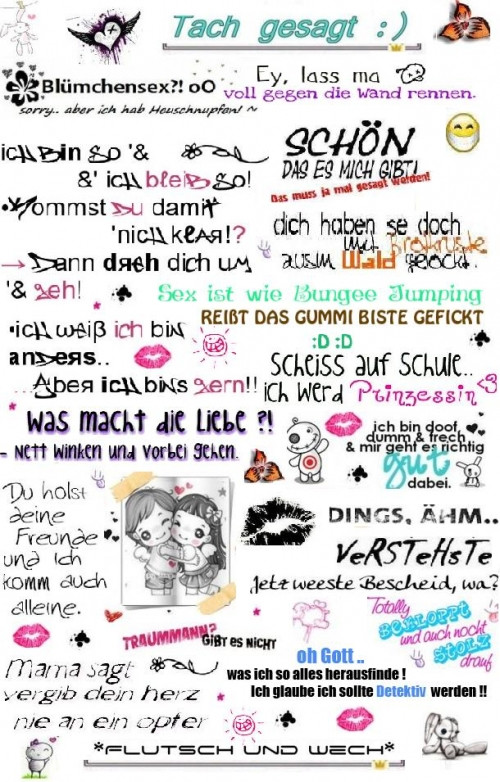 Tach gesagt :)
Blümchensex?! oO
sorry.. aber ich hab Heuschnupfen! ~
Ey, lass ma
voll gegen die Wand rennen.
ich bin so '&
&' ich bleib so!
Kommst Du damit
'nich klar!?
→ Dann dreh dich um
'& geh!
SCHÖN
DAS ES MICH GIBT!
Das muss ja mal gesagt werden!
dich haben se doch
mit Brotkruste
ausm Wald gelockt.
Sex ist wie Bungee Jumping
REIßT DAS GUMMI BISTE GEFICKT
:D :D
•ich weiß ich bin
anders..
...Aber ich bins gern!!
Scheiss auf Schule..
ich werd Prinzessin <3
Was macht die Liebe ?!
- Nett winken und vorbei gehen.
ich bin doof,
dumm & frech
& mir geht es richtig
gut
dabei.
Du holst
deine
Freunde
und Ich
komm auch
alleine.
DINGS, ÄHM..
VeRSTeHsTe
Jetz weeste Bescheid, wa?
TRAUMMANN?
GIBT ES NICHT
Totally
BEKLOPPT
und auch noch
STOLZ
drauf
oh Gott ..
was ich so alles herausfinde !
Ich glaube ich sollte Detektiv werden !!
Mama sagt
vergib dein herz
nie an ein opfer
*FLUTSCH UND WECH*